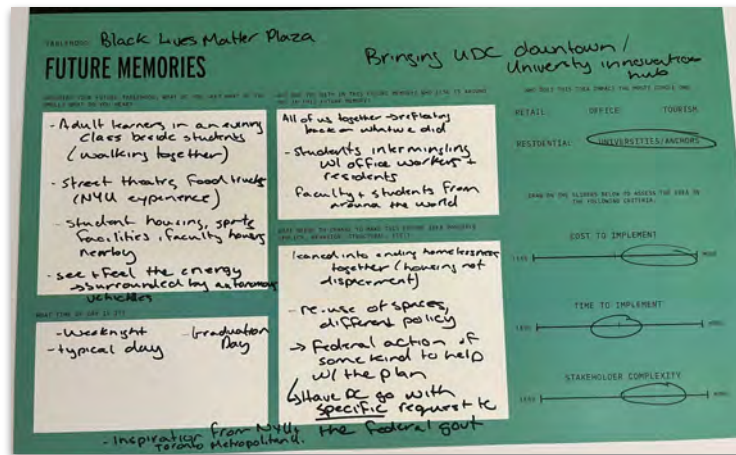 Black Lives Matter Plaza
FUTURE MEMORIES
Bringing UDC downtown /
University innovation
hub
- Adult learners in an evening
class beside students
(walking together)
- street theatre, food trucks
(NYU experience)
- student housing, sports
facilities, faculty housing
nearby
- see + feel the energy
→ surrounded by autonomous
vehicles
WHAT TIME OF DAY IS IT?
- Weeknight - Graduation
Day
- typical day
All of us together → reflecting
back on what we did
- students intermingling
w/ office workers +
residents
- faculty + students from
around the world
leaned into ending homelessness
together (housing not
displacement)
- re-use of spaces,
different policy
→ Federal action of
some kind to help
w/ the plan
↳ Have DC go with
specific request to
the federal govt
- Inspiration from NYU,
Toronto Metropolitan U.
RETAIL OFFICE TOURISM
RESIDENTIAL UNIVERSITIES/ANCHORS
DRAW ON THE SLIDERS BELOW TO ASSESS THE IDEA ON
THE FOLLOWING CRITERIA.
COST TO IMPLEMENT
LESS MORE
TIME TO IMPLEMENT
LESS MORE
STAKEHOLDER COMPLEXITY
LESS MORE